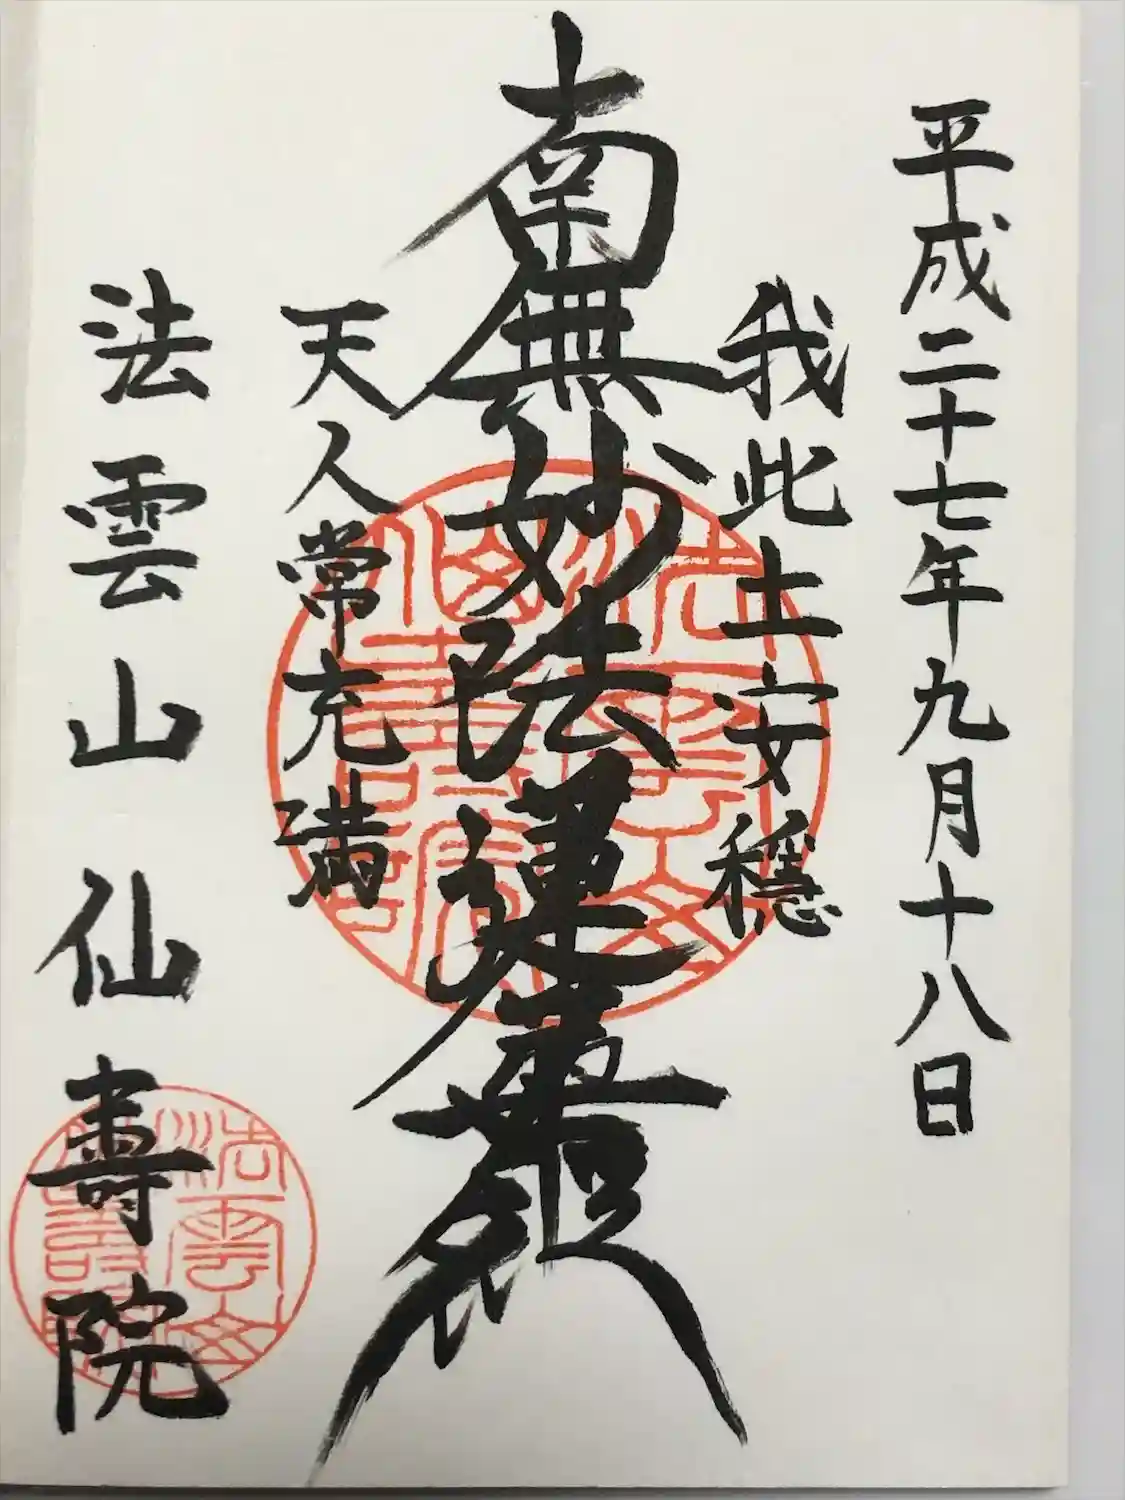 平成二十七年九月十八日
我此土安穩
南無妙法蓮華経
天人常充満
法雲山仙壽院